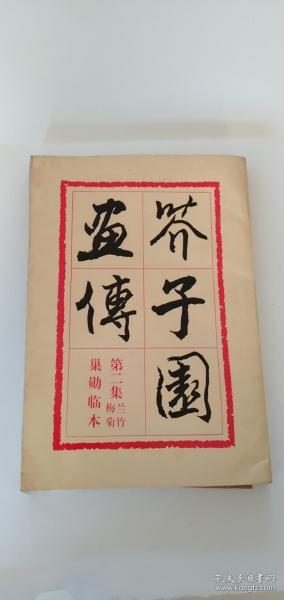 芥子園
畫傳
第二集 兰竹
梅菊
巢勋临本
孔夫子旧书网
www.kongfz.com